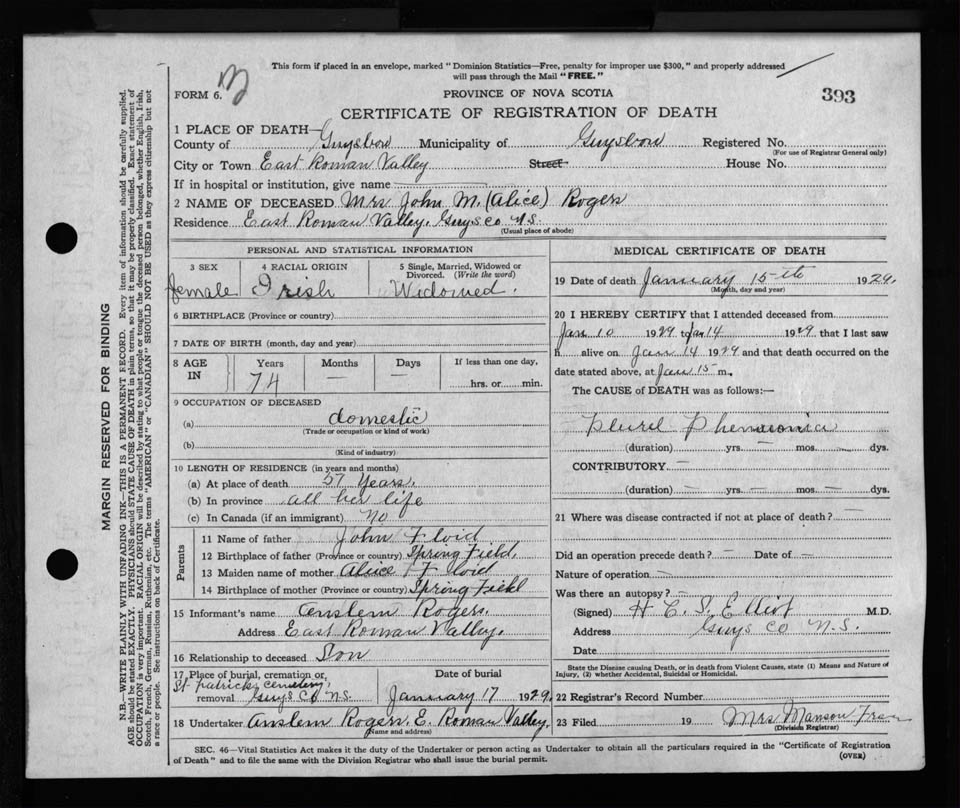 This form if placed in an envelope, marked "Dominion Statistics—Free, penalty for improper use $300," and properly addressed
will pass through the Mail "FREE."
FORM 6.
PROVINCE OF NOVA SCOTIA
393
CERTIFICATE OF REGISTRATION OF DEATH
1 PLACE OF DEATH—
County of Guysboro Municipality of Guysboro Registered No.
(For use of Registrar General only)
City or Town East Roman Valley Street House No.
If in hospital or institution, give name
2 NAME OF DECEASED Mrs John M. (Alice) Rogers
Residence East Roman Valley. Guys Co N.S.
(Usual place of abode)
PERSONAL AND STATISTICAL INFORMATION
3 SEX 4 RACIAL ORIGIN 5 Single, Married, Widowed or Divorced. (Write the word)
female Irish Widowed.
6 BIRTHPLACE (Province or country)
7 DATE OF BIRTH (month, day and year)
8 AGE IN Years Months Days If less than one day,
74 — — hrs. or min.
9 OCCUPATION OF DECEASED
(a) domestic
(Trade or occupation or kind of work)
(b)
(Kind of industry)
10 LENGTH OF RESIDENCE (in years and months)
(a) At place of death 57 Years.
(b) In province all her life
(c) In Canada (if an immigrant) No
Parents
11 Name of father John Floid
12 Birthplace of father (Province or country) Spring Field
13 Maiden name of mother Alice Floid
14 Birthplace of mother (Province or country) Spring Field
15 Informant's name Anslem Rogers.
Address East Roman Valley.
16 Relationship to deceased Son
17 Place of burial, cremation or removal St Patricks Cemetery, Guys Co N.S.
Date of burial
January 17 1929.
18 Undertaker Anslem Rogers E. Roman Valley.
(Name and address)
MEDICAL CERTIFICATE OF DEATH
19 Date of death January 15th 1929.
(Month, day and year)
20 I HEREBY CERTIFY that I attended deceased from
Jan 10 1929 to Jan 14 1929 that I last saw
h alive on Jan 14 1929 and that death occurred on the
date stated above, at Jan 15 m.
The CAUSE of DEATH was as follows:—
Plurel Phenmonia
(duration) yrs. — mos. — dys.
CONTRIBUTORY —
(duration) — yrs. — mos. — dys.
21 Where was disease contracted if not at place of death? —
Did an operation precede death? — Date of —
Nature of operation —
Was there an autopsy? —
(Signed) H C S Elliot M.D.
Address Guys Co N.S.
Date
State the Disease causing Death, or in death from Violent Causes, state (1) Means and Nature of
Injury, (2) whether Accidental, Suicidal or Homicidal.
22 Registrar's Record Number
23 Filed 19 Mrs Manson
(Division Registrar)
SEC. 46—Vital Statistics Act makes it the duty of the Undertaker or person acting as Undertaker to obtain all the particulars required in the "Certificate of Registration
of Death" and to file the same with the Division Registrar who shall issue the burial permit.
(OVER)
MARGIN RESERVED FOR BINDING
N.B.—WRITE PLAINLY WITH UNFADING INK—THIS IS A PERMANENT RECORD. Every item of information should be carefully supplied.
AGE should be stated EXACTLY. PHYSICIANS should STATE CAUSE OF DEATH in plain terms, so that it may be properly classified. Exact statement of
OCCUPATION is very important. RACIAL ORIGIN will be described by stating to what people or tongue the deceased person belonged, whether English, Irish,
Scotch, French, German, Russian, Ruthenian, etc. The terms "AMERICAN" or "CANADIAN" SHOULD NOT BE USED as they express citizenship but not
a race or people. See instructions on back of Certificate.